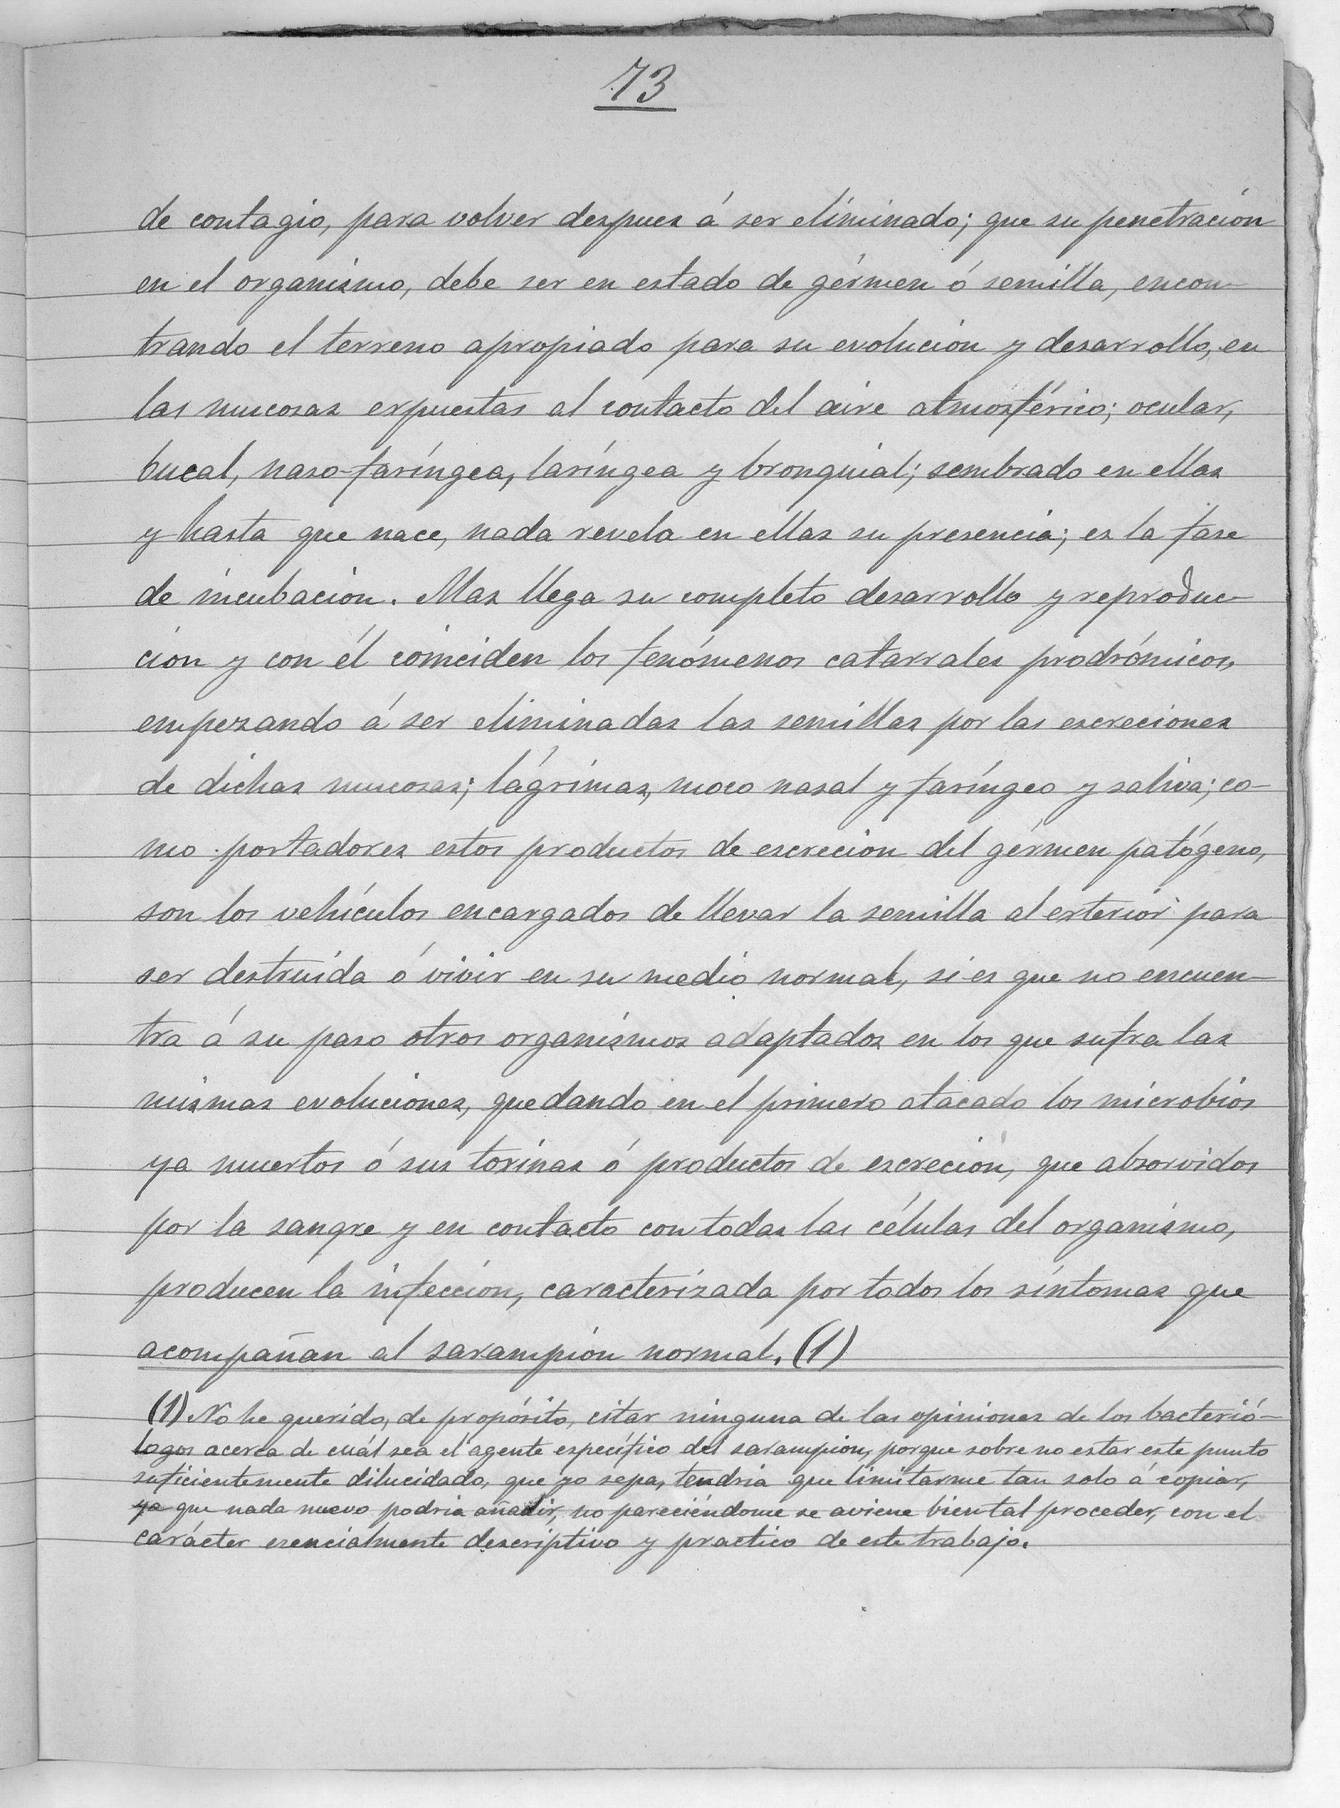 73
de contagio, para volver despues á ser eliminado; que su penetración
en el organismo, debe ser en estado de gérmen ó semilla, encon-
trando el terreno apropiado para su evolución y desarrollo, en
las mucosas expuestas al contacto del aire atmosférico; ocular,
bucal, naso-faríngea, laríngea y bronquial; sembrado en ellas
y hasta que nace, nada revela en ellas su presencia; es la fase
de incubación. Mas llega su completo desarrollo y reproduc-
ción y con él coinciden los fenómenos catarrales prodrómicos,
empezando á ser eliminadas las semillas por las escreciones
de dichas mucosas; lágrimas, moco nasal y faríngeo y saliva; co-
mo portadores estos productos de escrecion del gérmen patógeno,
son los vehículos encargados de llevar la semilla al exterior para
ser destruída ó vivir en su medio normal, si es que no encuen-
tra á su paso otros organismos adaptados en los que sufra las
mismas evoluciones, quedando en el primero atacado los microbios
ya muertos ó sus toxinas ó productos de escreción, que absorvidos
por la sangre y en contacto con todas las células del organismo,
producen la infección, caracterizada por todos los síntomas que
acompañan al sarampión normal. (1)
(1) No he querido, de propósito, citar ninguna de las opiniones de los bacterió-
logos acerca de cuál sea el agente específico del sarampion, porque sobre no estar este punto
suficientemente dilucidado, que yo sepa, tendria que limitarme tan solo á copiar,
ya que nada nuevo podria añadir, no pareciéndome se aviene bien tal proceder, con el
carácter esencialmente descriptivo y practico de este trabajo.